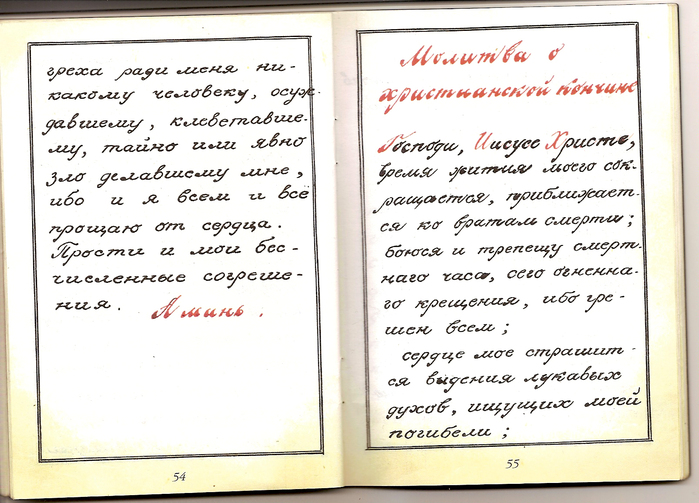 греха ради меня ни-
какому человеку, осуж-
давшему, клеветавше-
му, тайно или явно
зло делавшему мне,
ибо и я всем и всё
прощаю от сердца.
Прости и мои бес-
численные согреше-
ния. Аминь.
54
Молитва о
христианской кончине
Господи, Иисусе Христе,
время жития моего сок-
ращается, приближает-
ся ко вратам смерти;
боюся и трепещу смерт-
наго часа, сего огненна-
го крещения, ибо гре-
шен всем;
сердце мое страшит-
ся видения лукавых
духов, ищущих моей
погибели;
55